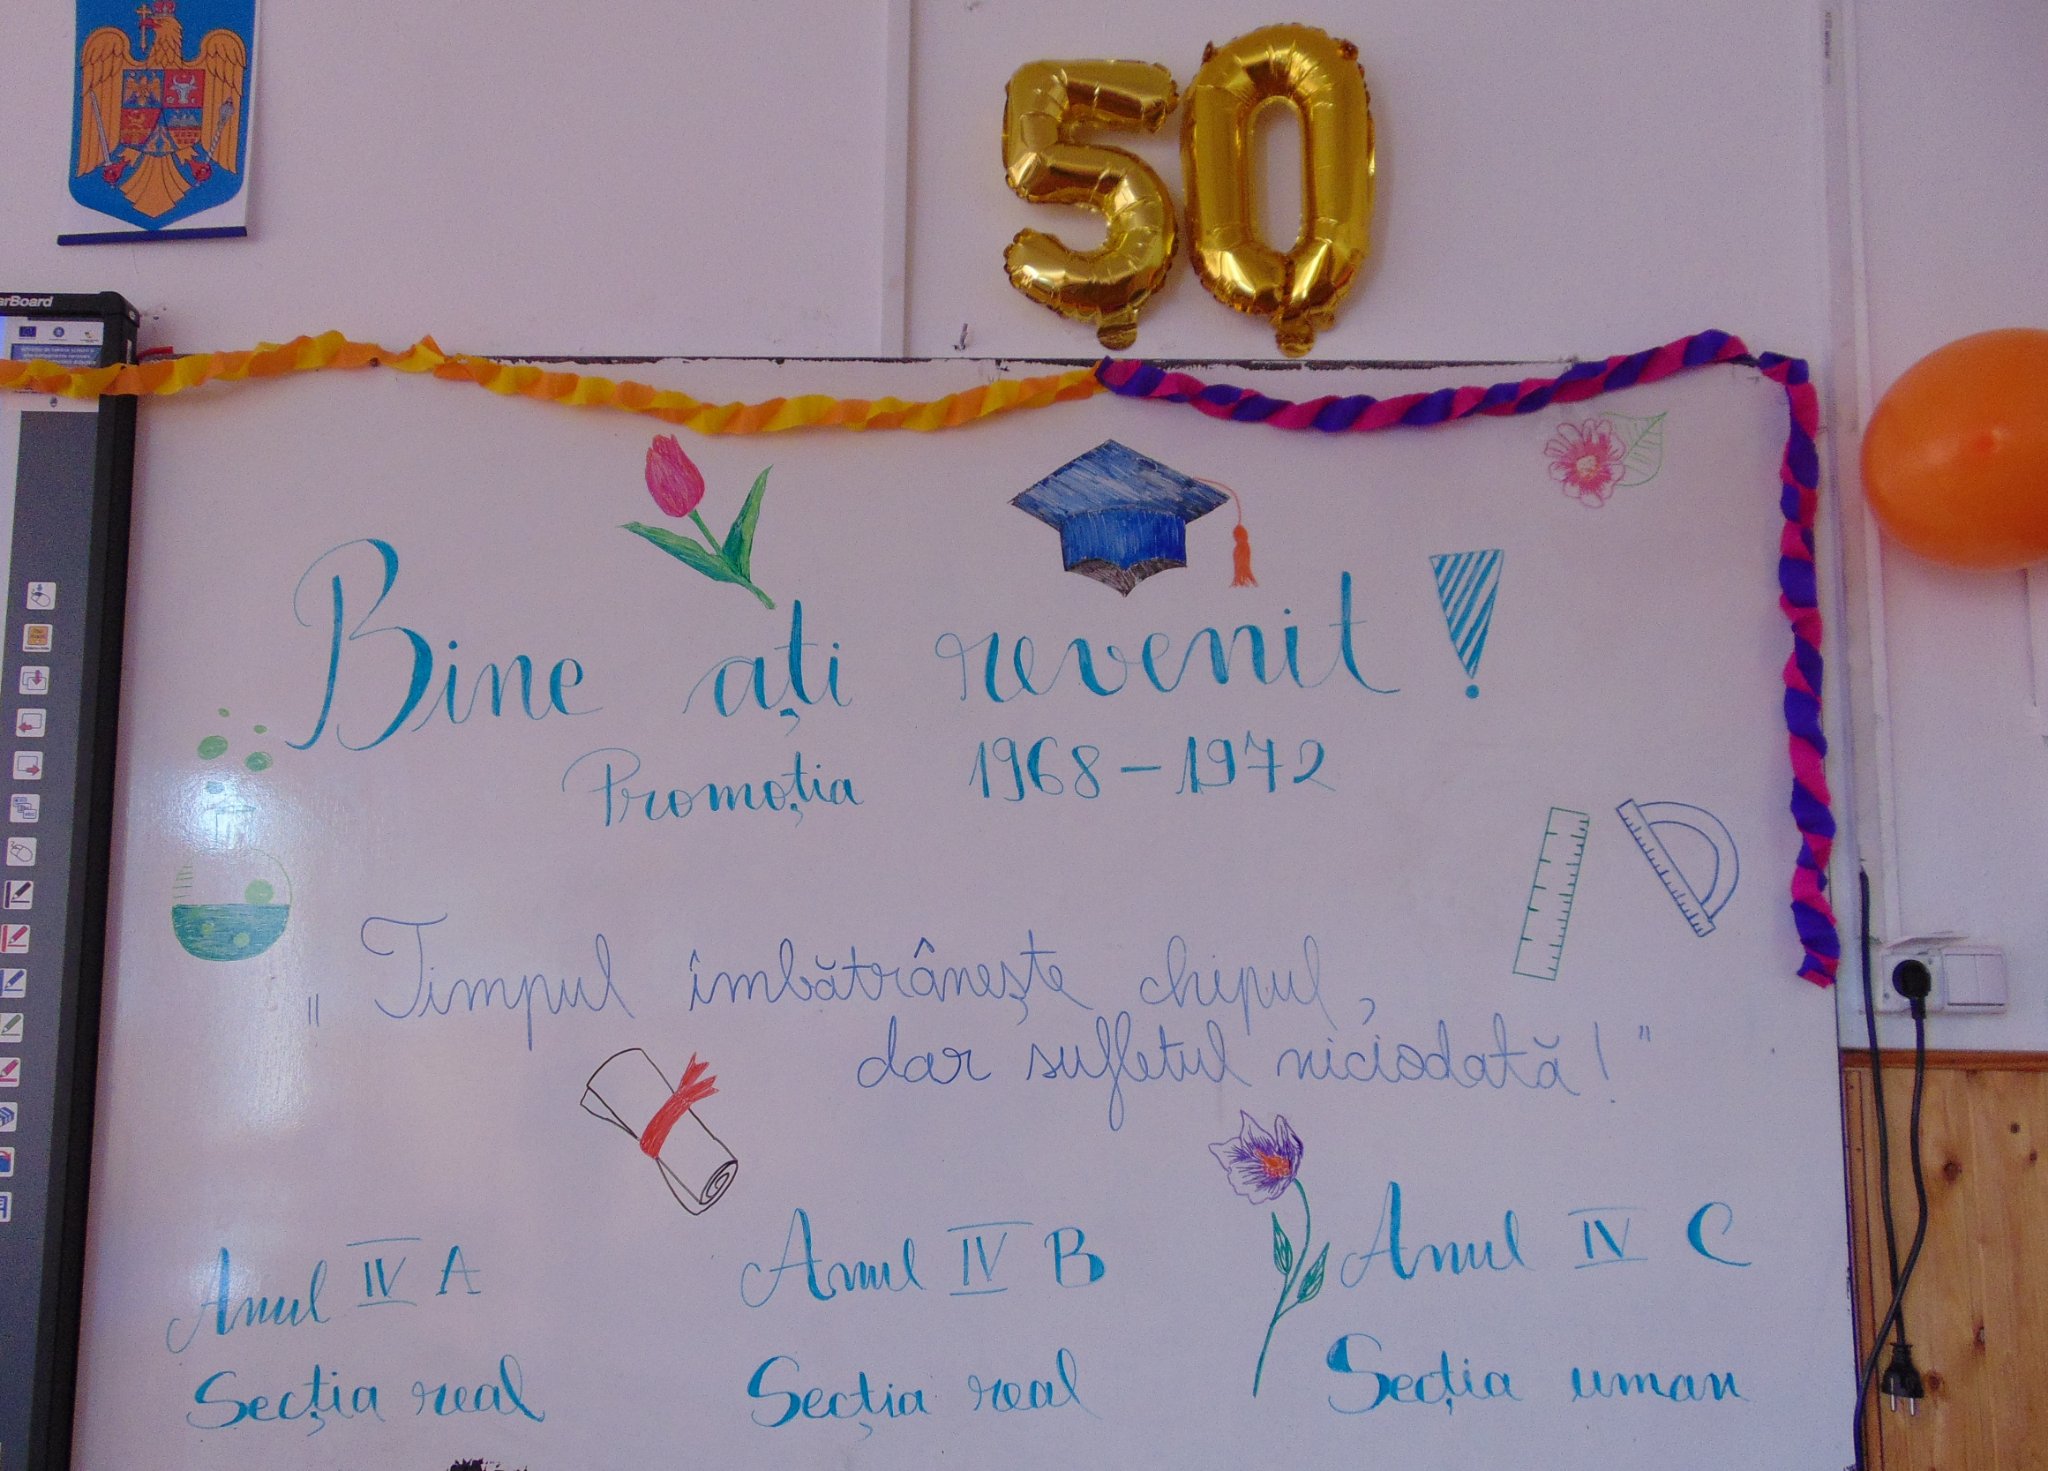 50
arBoard
Bine ați revenit!
Promoția 1968-1972
„Timpul îmbătrânește chipul,
dar sufletul niciodată!"
Anul IV A
Secția real
Anul IV B
Secția real
Anul IV C
Secția uman